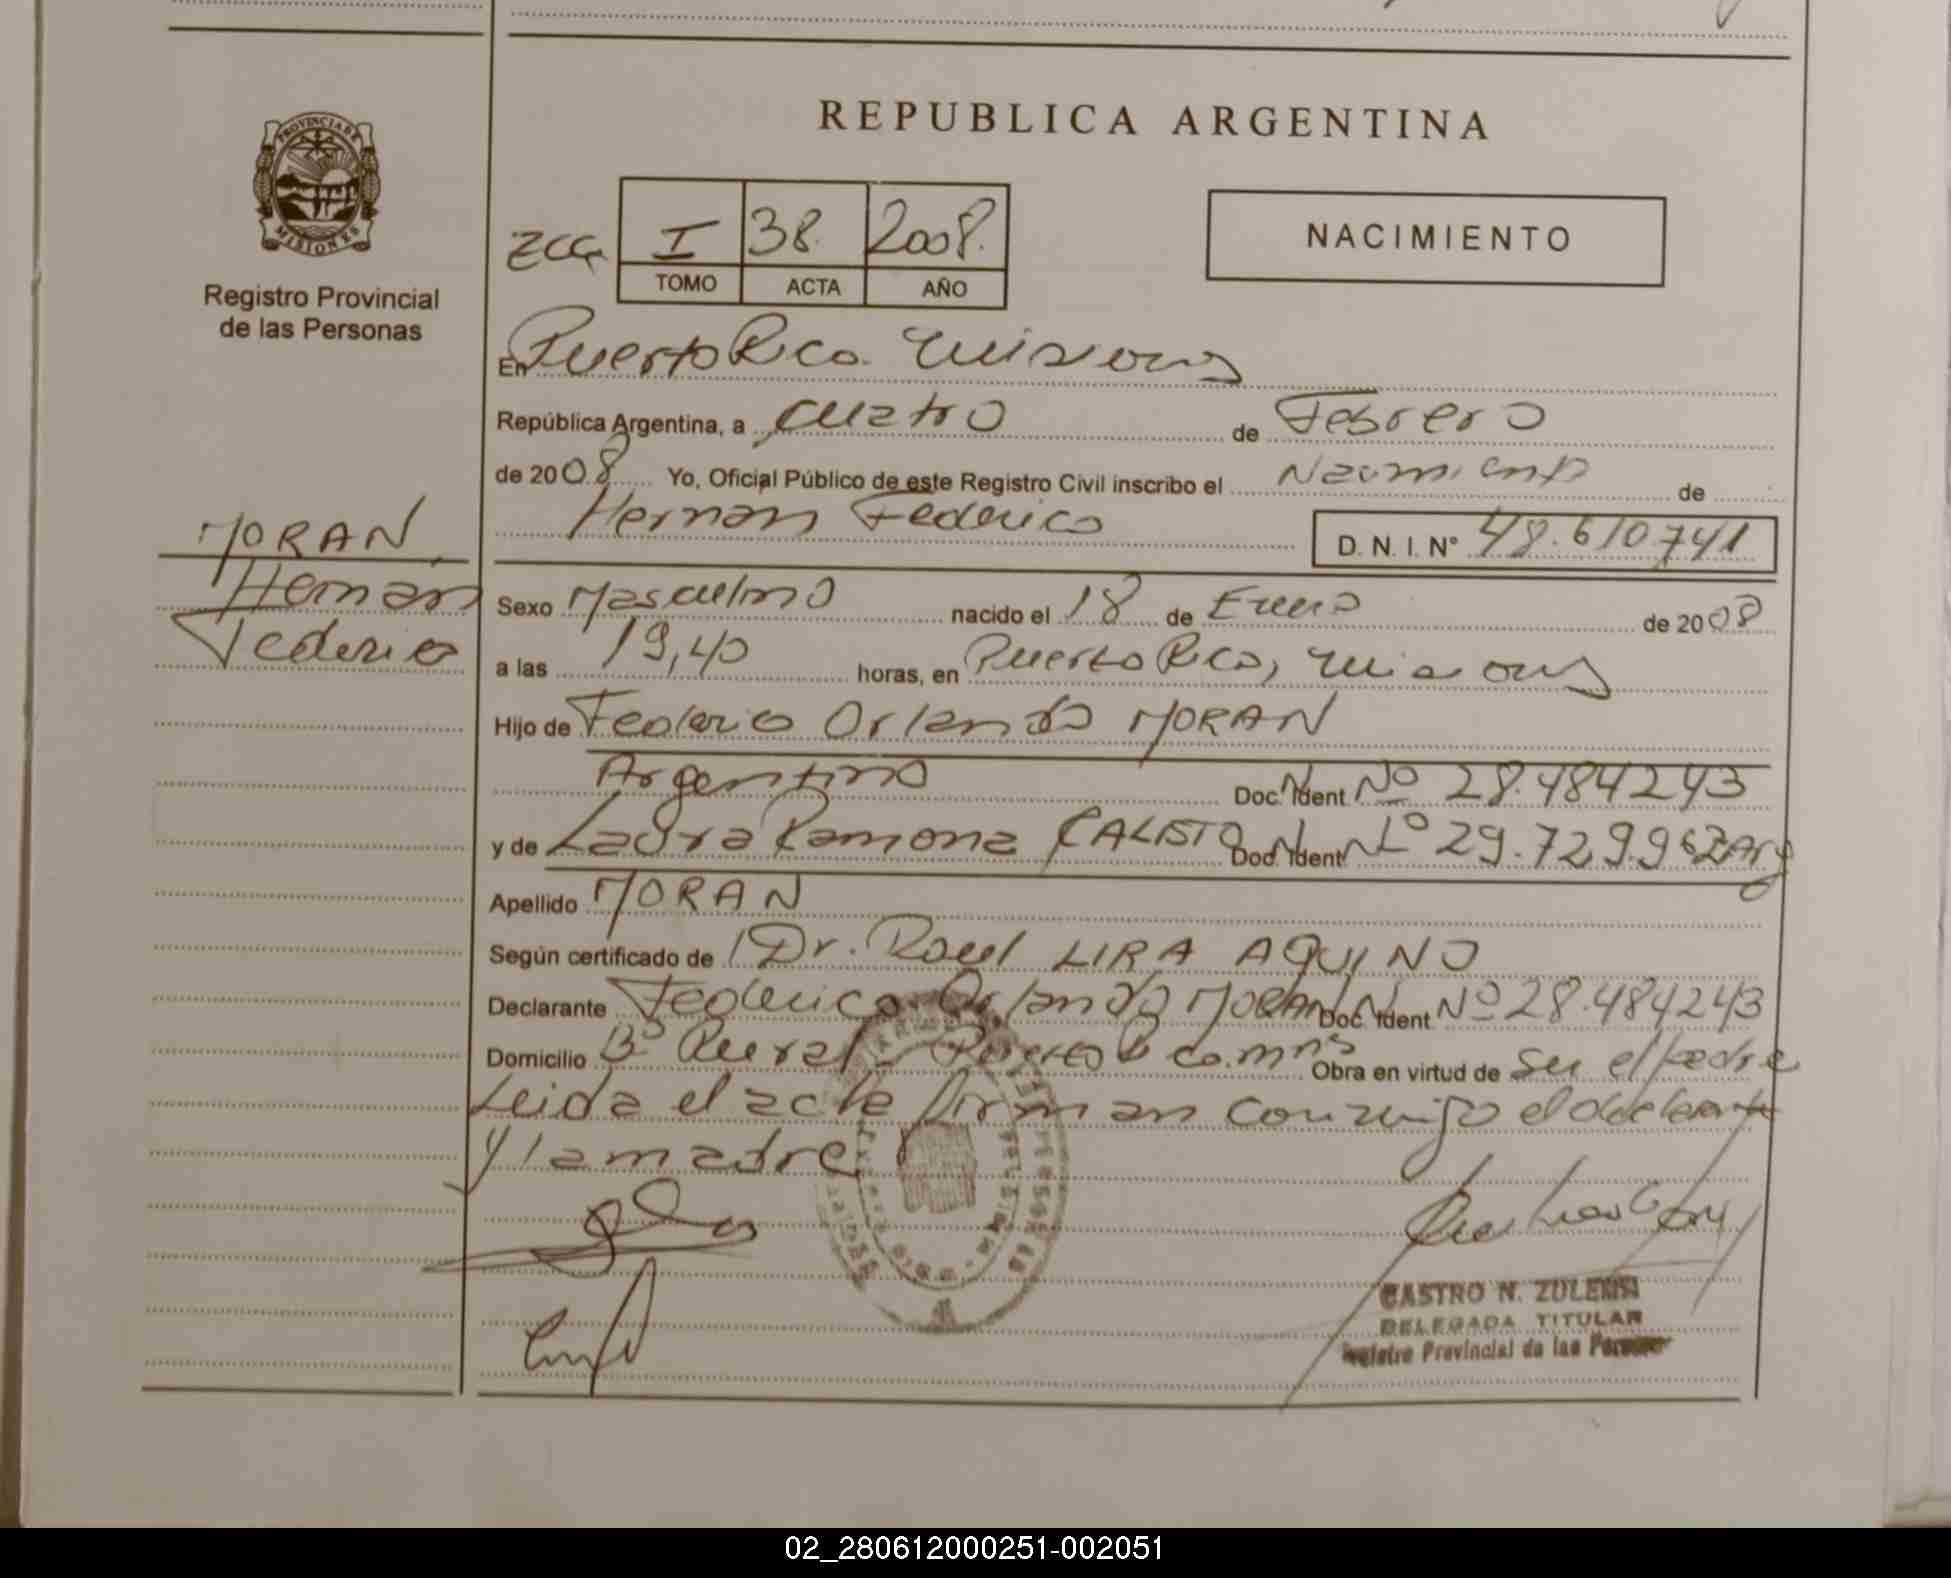 REPUBLICA ARGENTINA
PROVINCIA DE
MISIONES
Registro Provincial
de las Personas
I 38 2008.
TOMO ACTA AÑO
NACIMIENTO
En Puerto Rico. Misiones
República Argentina, a cuatro de Febrero
de 2008 Yo, Oficial Público de este Registro Civil inscribo el Nacimiento de
Hernan Federico D. N. I. N° 48.610741
MORAN
Hernán
Federico
Sexo Masculino nacido el 18 de Enero de 2008
a las 19,40 horas, en Puerto Rico, Misiones
Hijo de Federico Orlando MORAN
Argentino Doc. Ident N° 28.484243
y de Laura Ramona CALISTO Doc. Ident N° 29.729962 Arg
Apellido MORAN
Según certificado de Dr. Raul LIRA AQUINO
Declarante Federico Orlando MORAN Doc. Ident N° 28.484243
Domicilio B° Rural Puerto Rico. Mnes Obra en virtud de ser el padre
Leida el acta firman conmigo el declarante
y la madre
CASTRO N. ZULEMA
DELEGADA TITULAR
Registro Provincial de las Personas
02_280612000251-002051